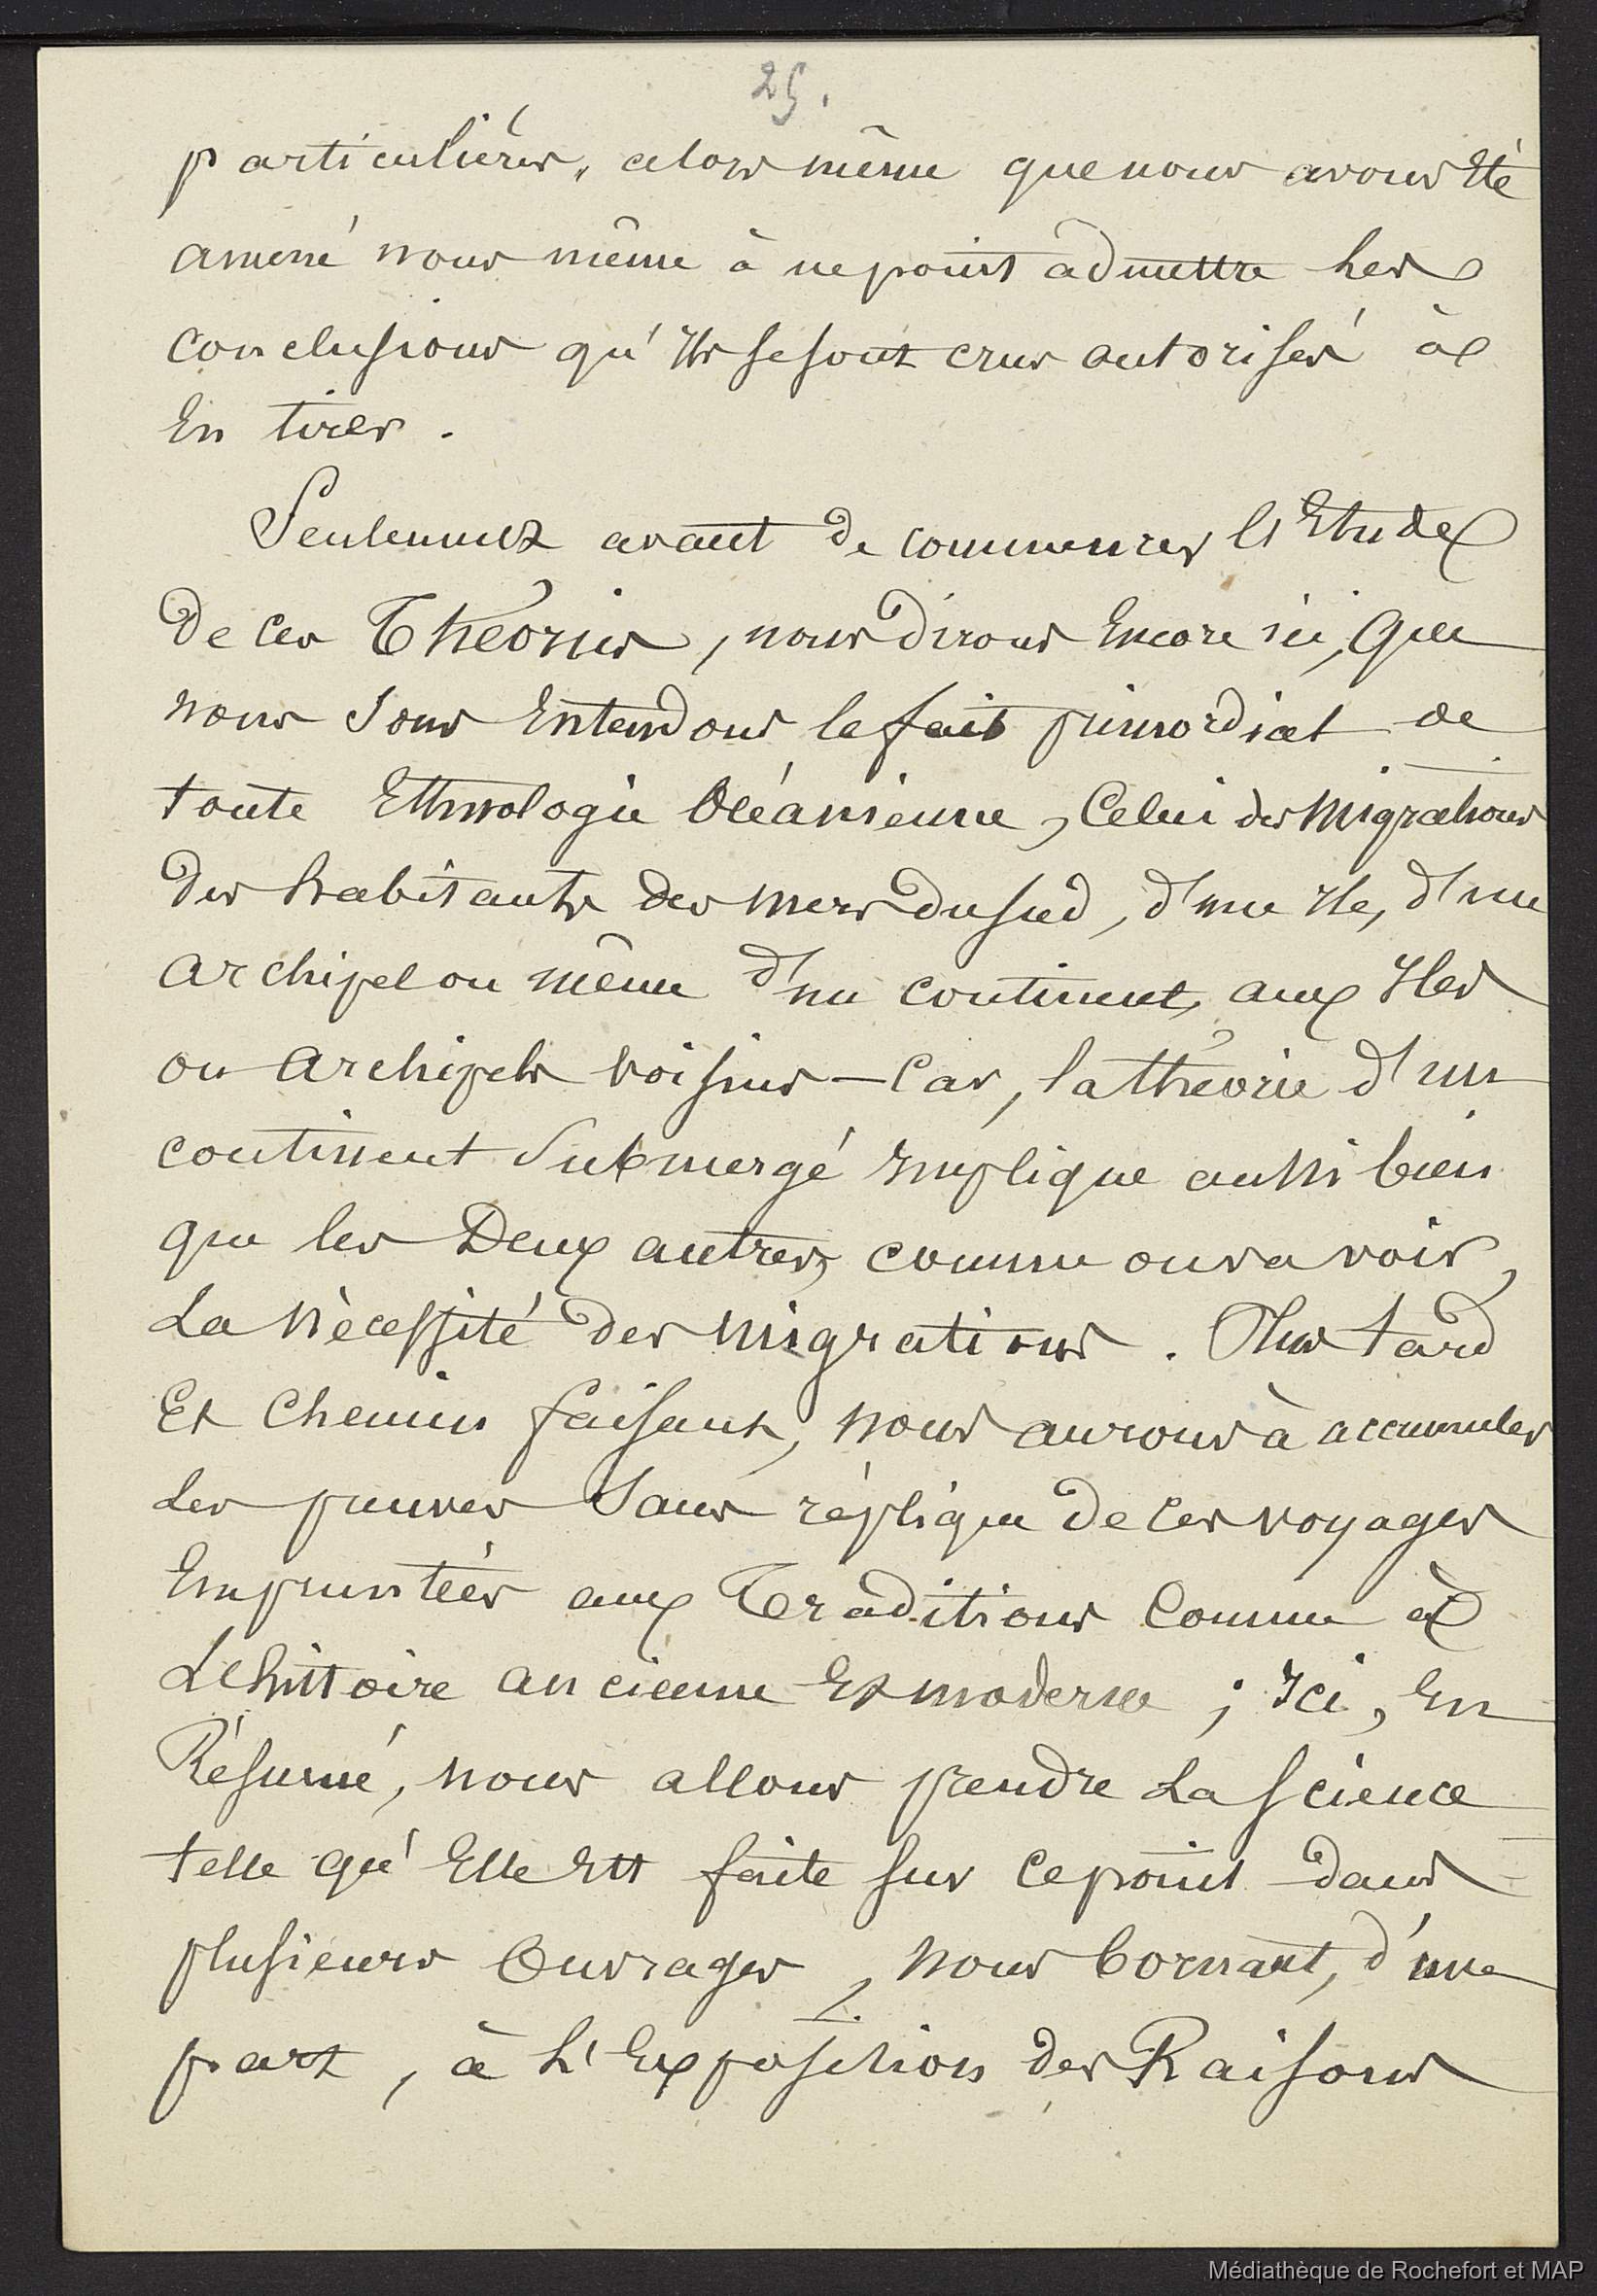 25.
particulières, alors même que nous avons Eté
amené nous même à ne point admettre les
conclusions qu'Ils se sont crus autorisés à
En tirer.
Seulement avant de commencer l'Etude
De ces Théories, nous dirons Encore ici, que
nous sous Entendons le fait primordial de
toute Ethnologie Océanienne, Celui des Migrations
des habitants des mers du sud, d'une Ile, d'un
archipel ou même d'un continent, aux Iles
ou archipels voisins — Car, la théorie d'un
continent submergé Implique aussi bien
que les Deux autres, comme on va voir,
La Nécessité des migrations. Plus tard
Et Chemin faisant, nous aurons à accumuler
Les preuves Sans réplique de ces voyages
Empruntées aux Traditions Comme à
L'histoire ancienne Et moderne ; Ici, En
Résumé, nous allons prendre La science
telle qu'Elle Est faite sur ce point dans
plusieurs Ouvrages, nous bornant, d'une
part, à L'Exposition des Raisons
Médiathèque de Rochefort et MAP